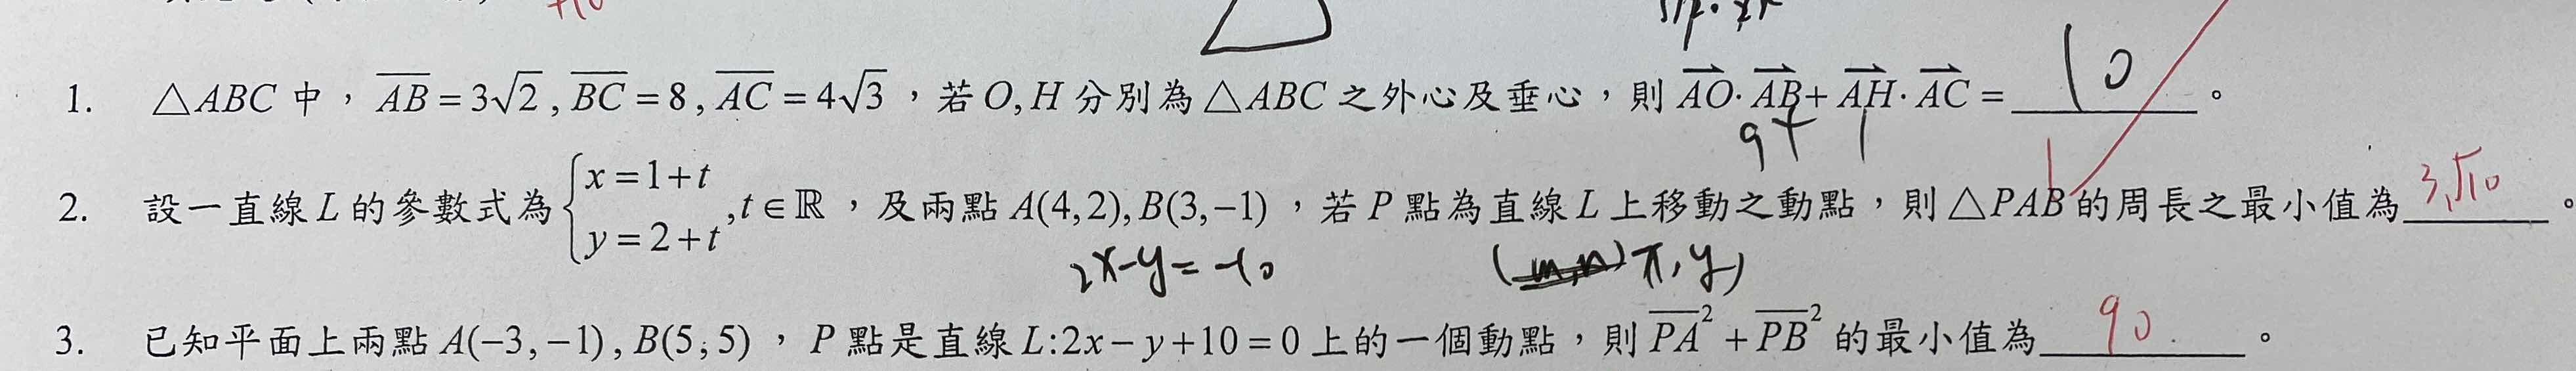 +10
1. △ABC 中，AB̅ = 3√2 , BC̅ = 8 , AC̅ = 4√3 ，若 O, H 分別為 △ABC 之外心及垂心，則 AO⃗ · AB⃗ + AH⃗ · AC⃗ = 10 。
9 + 1
2. 設一直線 L 的參數式為 { x = 1 + t
y = 2 + t , t ∈ ℝ ，及兩點 A(4, 2), B(3, −1) ，若 P 點為直線 L 上移動之動點，則 △PAB 的周長之最小值為 3√10 。
2x−y = −10 (m,n) x, y)
3. 已知平面上兩點 A(−3, −1) , B(5, 5) ， P 點是直線 L:2x − y + 10 = 0 上的一個動點，則 PA̅² + PB̅² 的最小值為 90 。